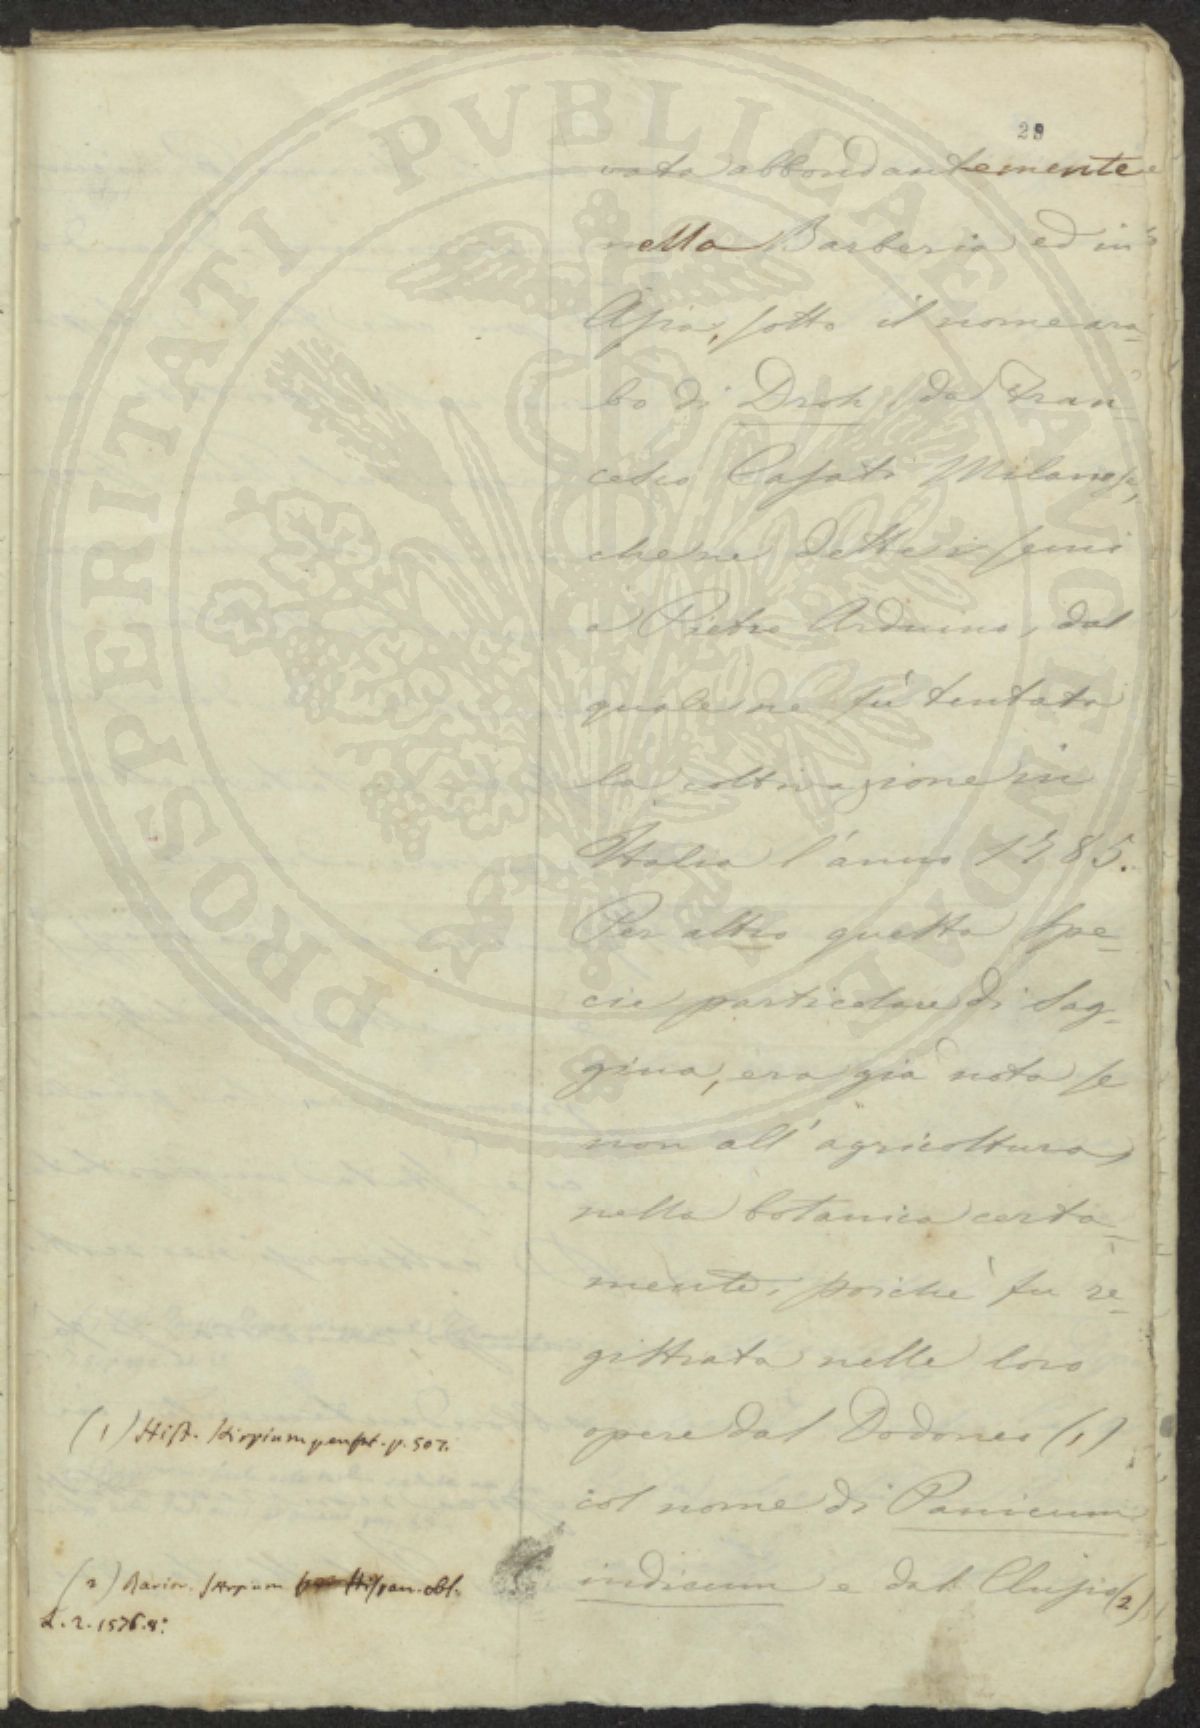 29
vata abbondantemente
nella Barberia ed in
Asia, sotto il nome ara-
bo di Droh, da Fran-
cesco Casati Milanese,
che ne dette i semi
a Pietro Arduino, dal
quale ne fù tentata
la coltivazione in
Italia l'anno 1785.
Per altro questa spe-
cie particolare di sag-
gina, era già nota se
non all'agricoltura,
nella botanica certa-
mente, poichè fu re-
gistrata nelle loro
opere dal Dodoneo (1)
col nome di Panicum
indicum e dal Clusio (2)
(1) Hist. stirpium p. 507.
(2) Rarior. stirpium Hispan.
L. 2. 1576. 8:
PROSPERITATI PVBLICAE AVGENDAE